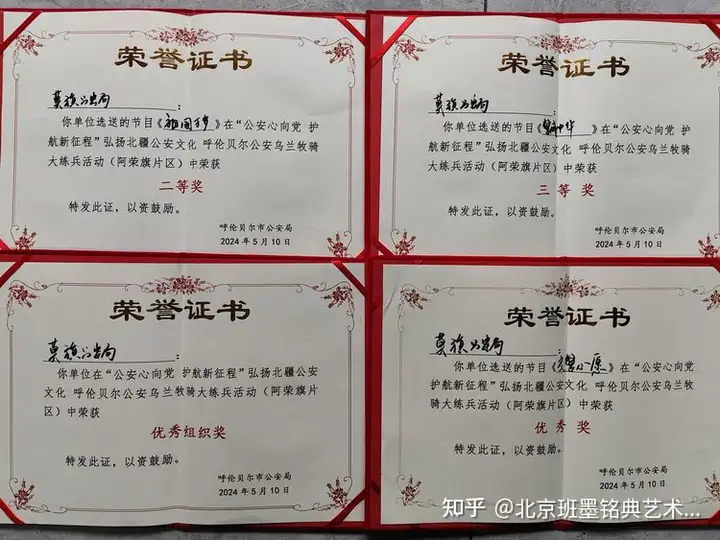 荣誉证书
莫旗公安局：
你单位选送的节目《祖国万岁》在“公安心向党 护
航新征程”弘扬北疆公安文化 呼伦贝尔公安乌兰牧骑
大练兵活动（阿荣旗片区）中荣获
二等奖
特发此证，以资鼓励。
呼伦贝尔市公安局
2024年5月10日
荣誉证书
莫旗公安局：
你单位选送的节目《中华》在“公安心向党 护
航新征程”弘扬北疆公安文化 呼伦贝尔公安乌兰牧骑
大练兵活动（阿荣旗片区）中荣获
三等奖
特发此证，以资鼓励。
呼伦贝尔市公安局
2024年5月10日
荣誉证书
莫旗公安局：
你单位在“公安心向党 护航新征程”弘扬北疆公安
文化 呼伦贝尔公安乌兰牧骑大练兵活动（阿荣旗片
区）中荣获
优秀组织奖
特发此证，以资鼓励。
呼伦贝尔市公安局
2024年5月10日
荣誉证书
莫旗公安局：
你单位选送的节目《心愿》在“公安心向党
护航新征程”弘扬北疆公安文化 呼伦贝尔公安乌兰牧
骑大练兵活动（阿荣旗片区）中荣获
优秀奖
特发此证，以资鼓励。
呼伦贝尔市公安局
2024年5月10日
知乎 @北京班墨铭典艺术...